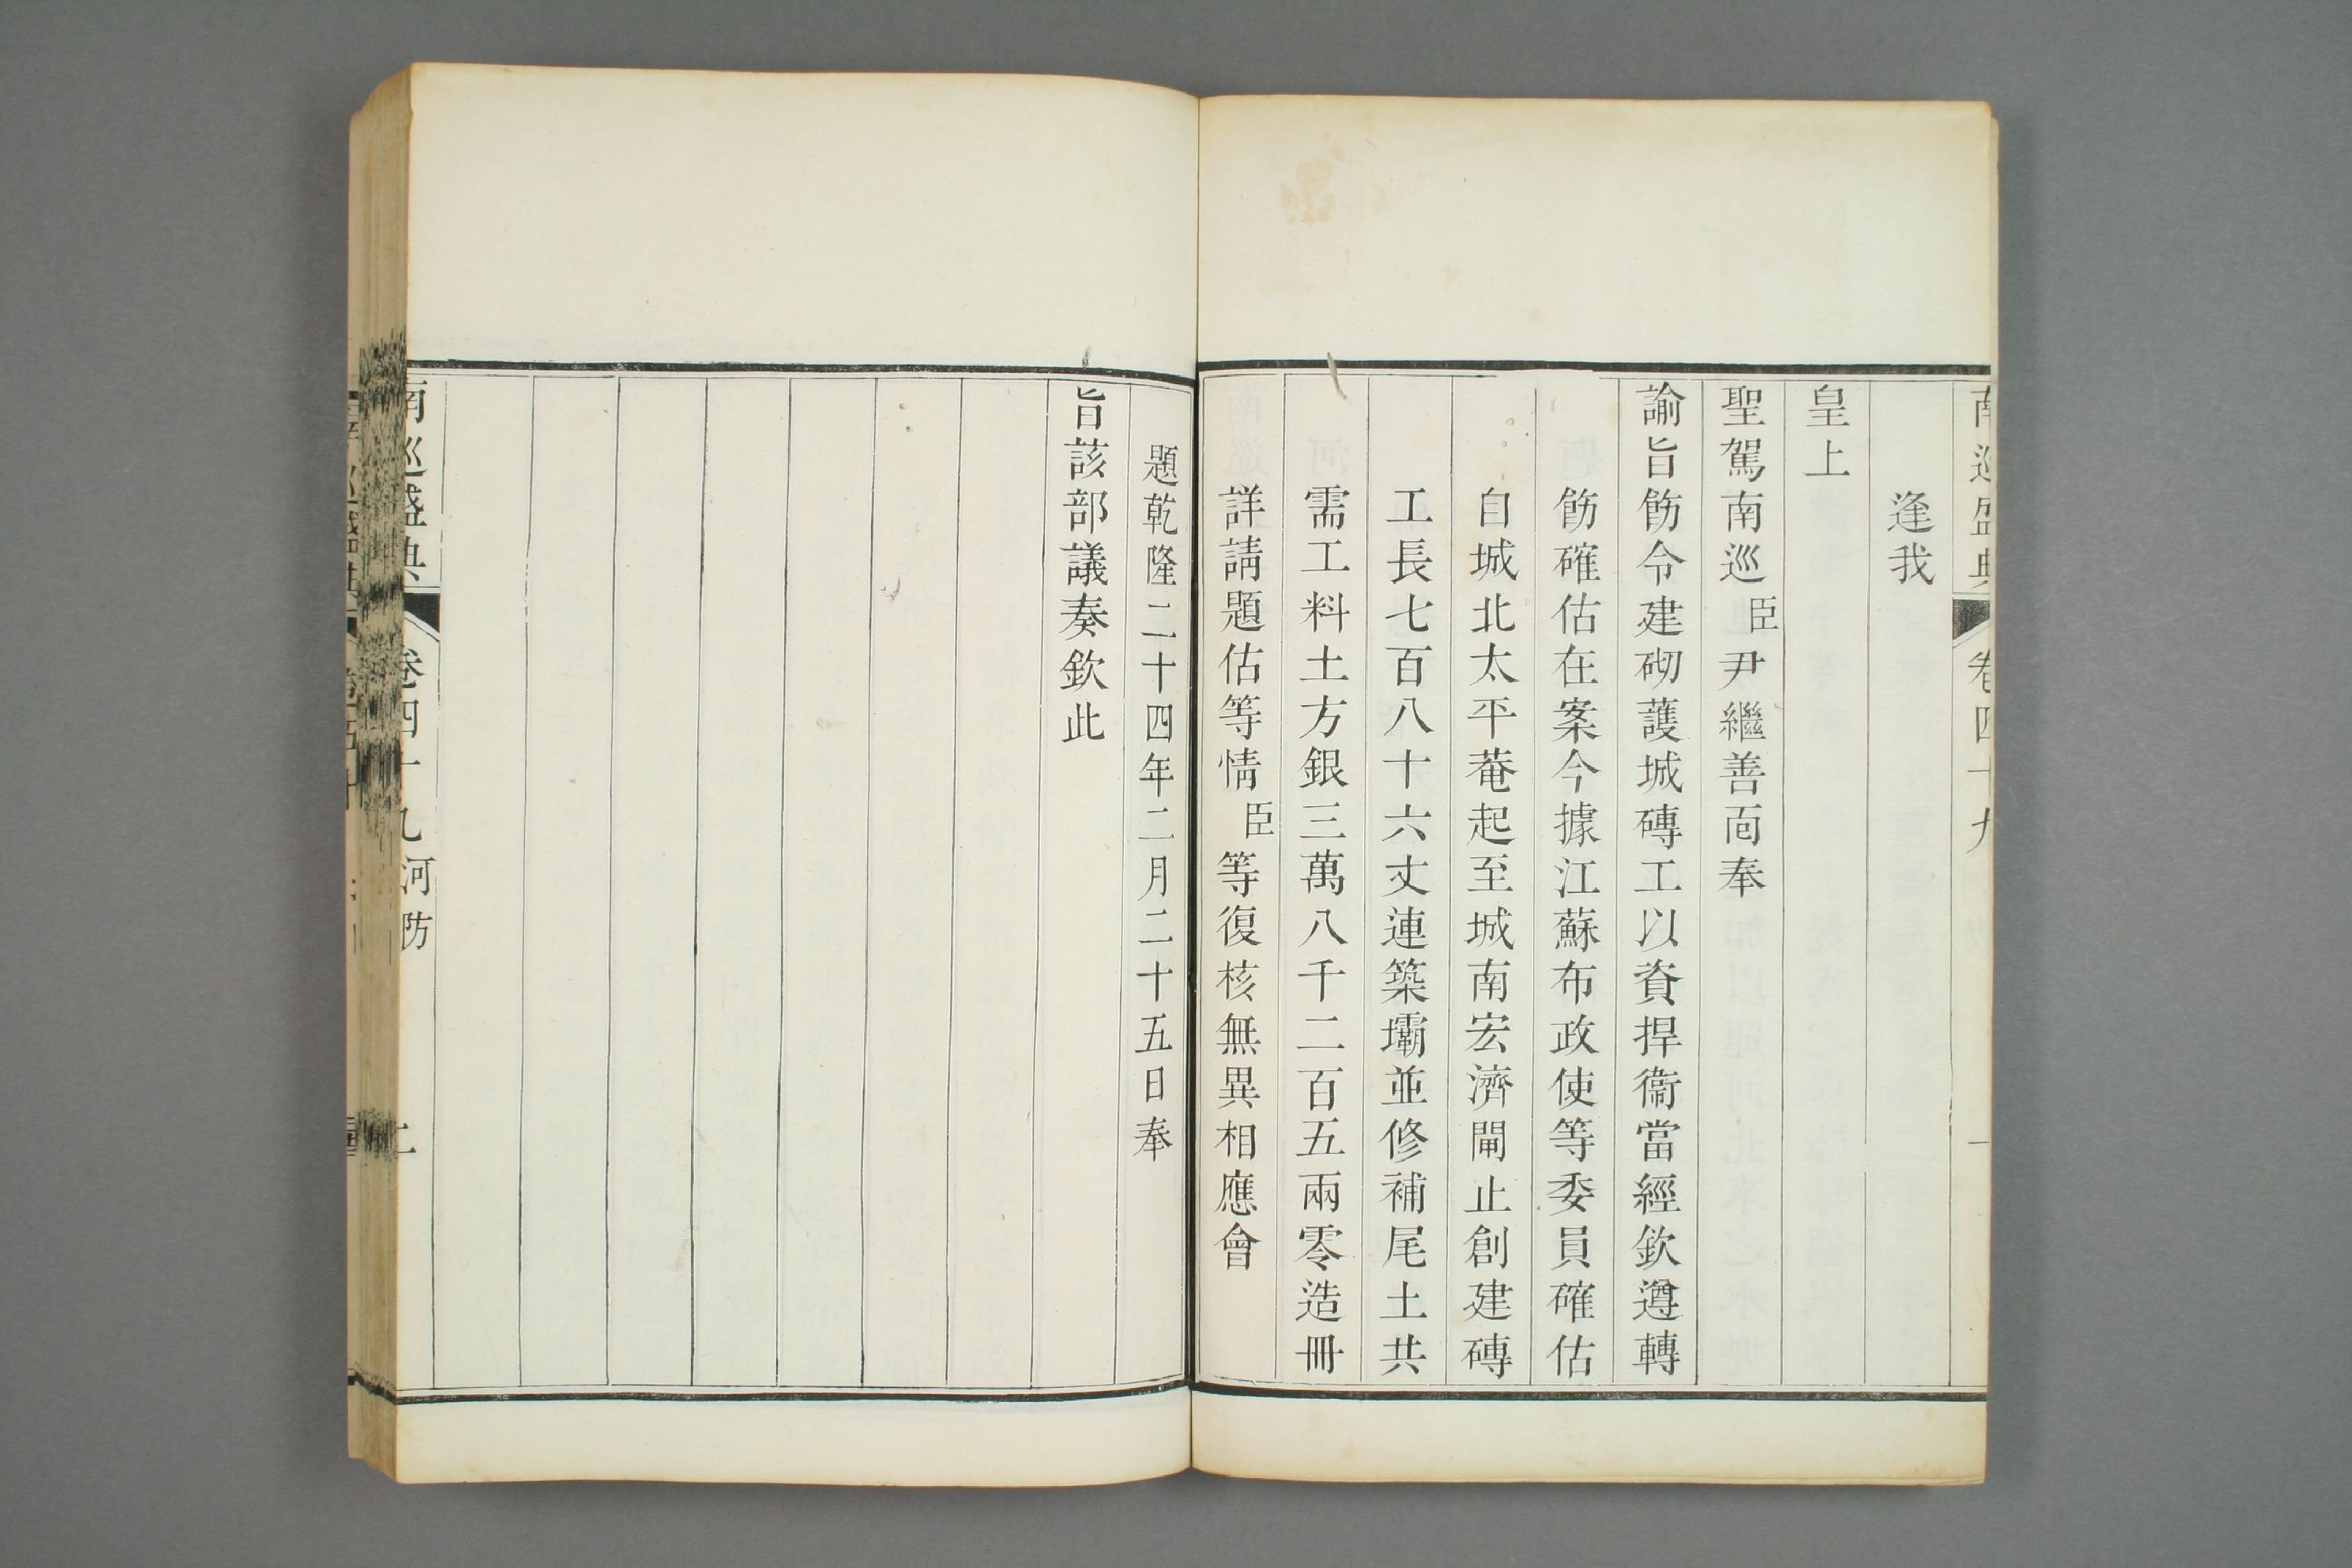 南巡盛典 卷四十九 一
逢我
皇上
聖駕南巡臣尹繼善靣奉
諭旨飭令建砌護城磚工以資捍衞當經欽遵轉
飭確估在案今據江蘇布政使等委員確估
自城北太平菴起至城南宏濟閘止創建磚
工長七百八十六丈連築壩並修補尾土共
需工料土方銀三萬八千二百五兩零造冊
詳請題估等情臣等復核無異相應會
題乾隆二十四年二月二十五日奉
旨該部議奏欽此
南巡盛典 卷四十九 河防 二